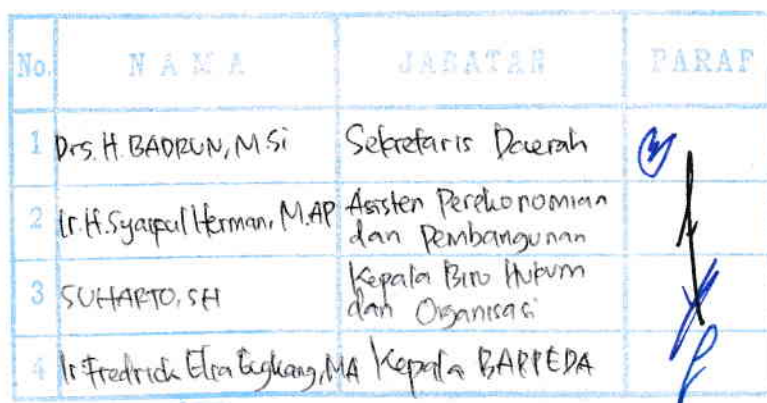 No. NAMA JABATAN PARAF
1 Drs. H. BADRUN, M.Si Sekretaris Daerah
2 Ir. H. Syaipul Herman, M.AP Asisten Perekonomian
dan Pembangunan
3 SUHARTO, SH Kepala Biro Hukum
dan Organisasi
4 Ir Fredrick Elia MA Kepala BAPPEDA